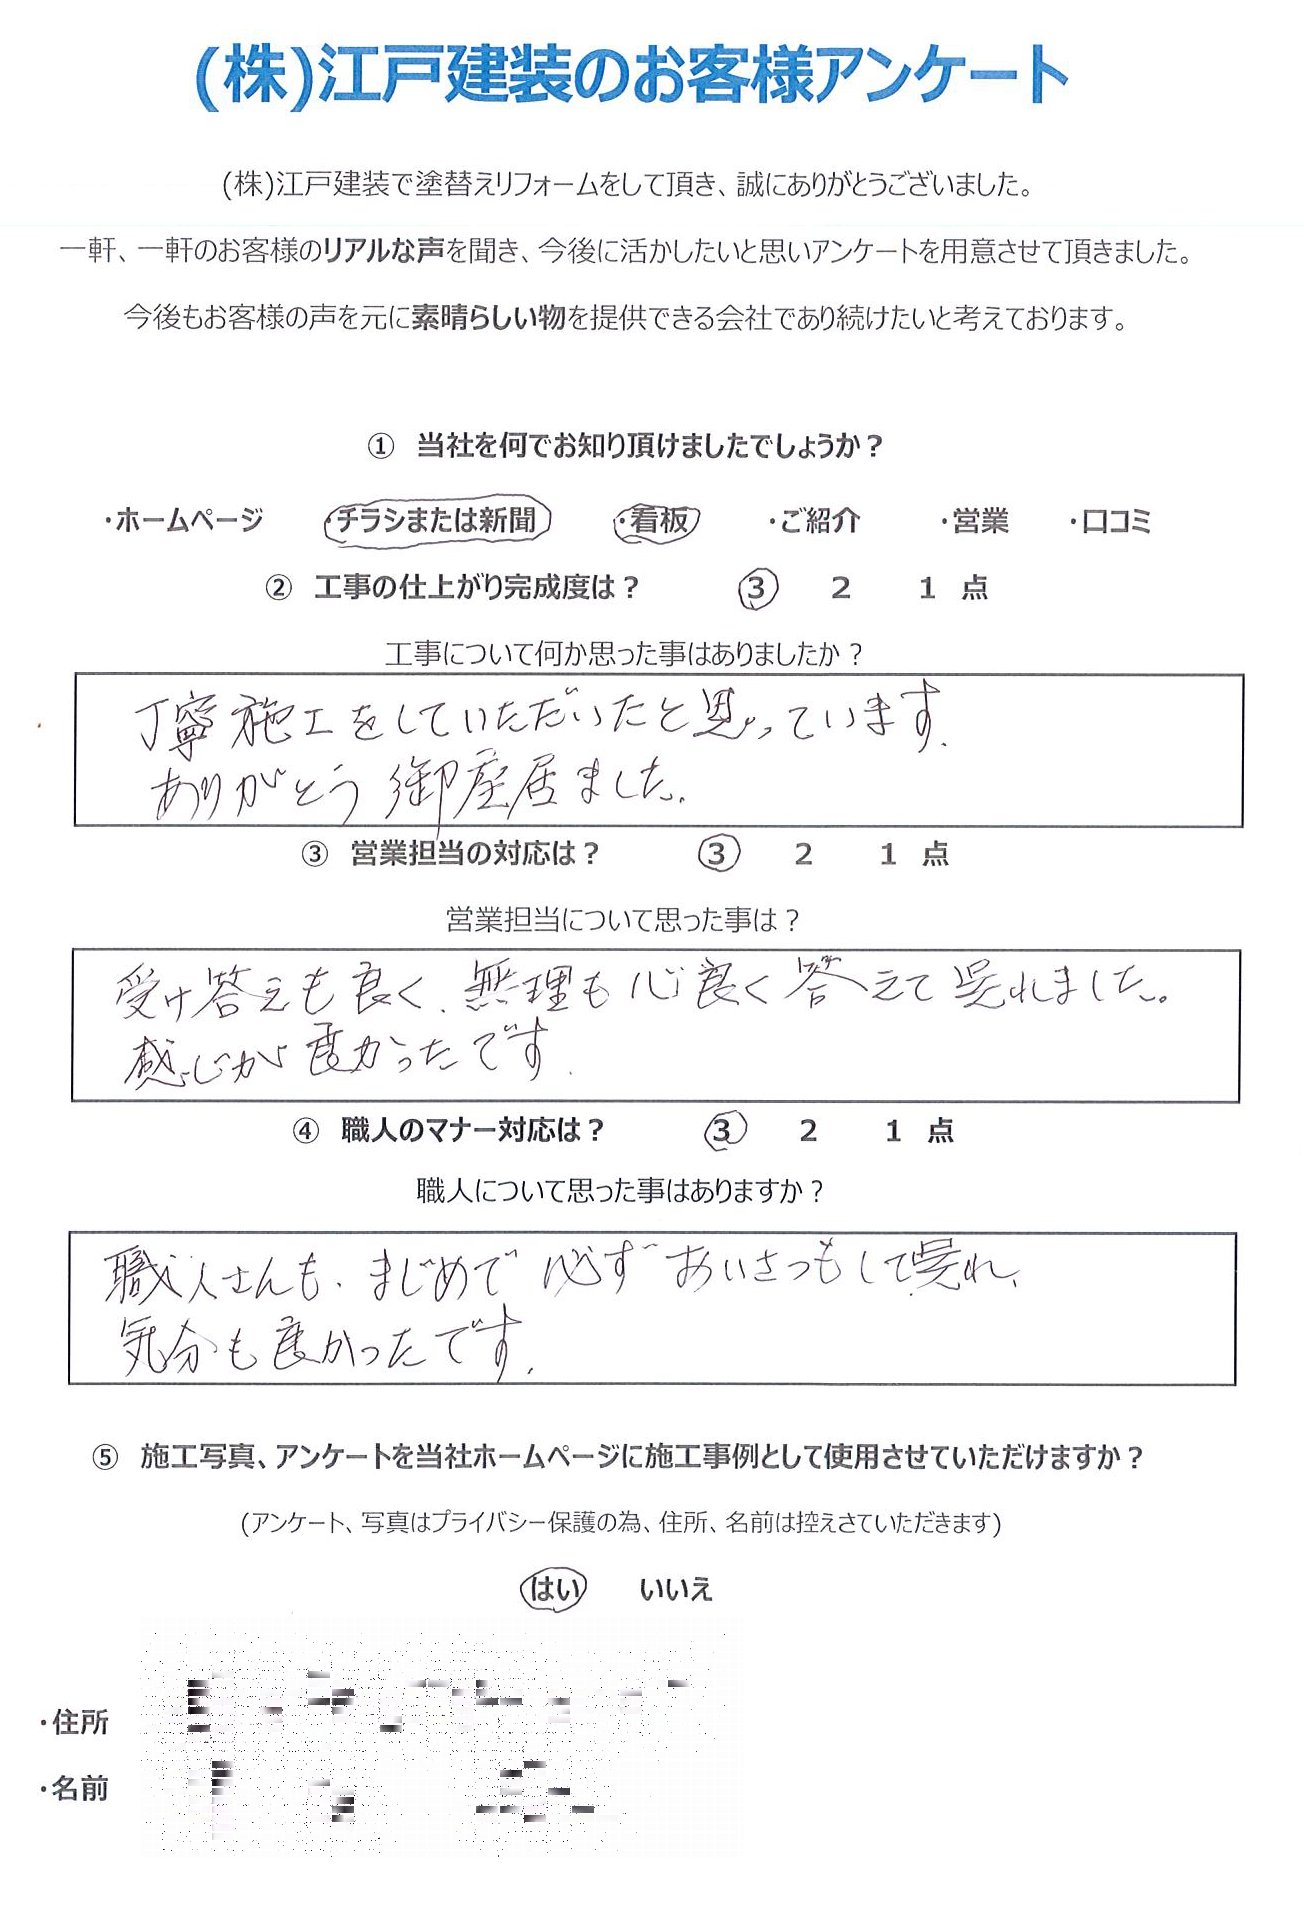 (株)江戸建装のお客様アンケート
(株)江戸建装で塗替えリフォームをして頂き、誠にありがとうございました。
一軒、一軒のお客様のリアルな声を聞き、今後に活かしたいと思いアンケートを用意させて頂きました。
今後もお客様の声を元に素晴らしい物を提供できる会社であり続けたいと考えております。
① 当社を何でお知り頂けましたでしょうか？
・ホームページ ・チラシまたは新聞 ・看板 ・ご紹介 ・営業 ・口コミ
② 工事の仕上がり完成度は？ 3 2 1 点
工事について何か思った事はありましたか？
丁寧施工をしていただいたと思っています.
ありがとう御座居ました.
③ 営業担当の対応は？ 3 2 1 点
営業担当について思った事は？
受け答えも良く、無理も心良く答えて呉れました。
感じが良かったです.
④ 職人のマナー対応は？ 3 2 1 点
職人について思った事はありますか？
職人さんも、まじめで必ずあいさつもして呉れ、
気分も良かったです.
⑤ 施工写真、アンケートを当社ホームページに施工事例として使用させていただけますか？
(アンケート、写真はプライバシー保護の為、住所、名前は控えさていただきます)
はい いいえ
・住所
・名前